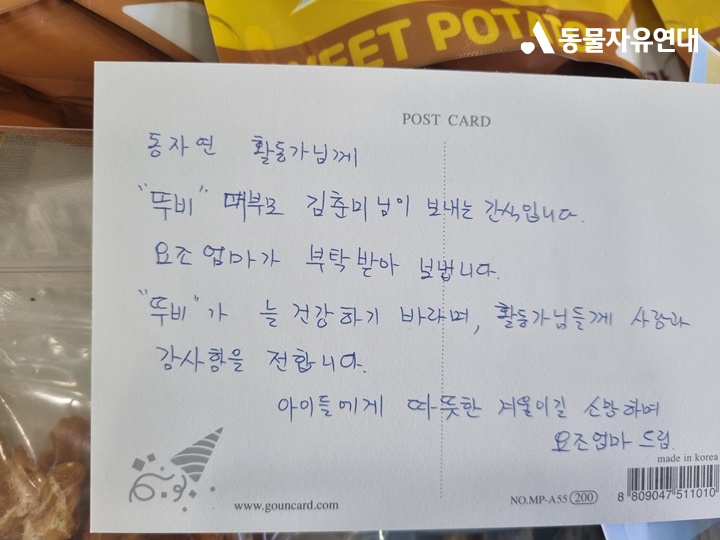 SWEET POTATO
동물자유연대
POST CARD
동자연 활동가님께
"뚜비" 대부모 김춘미님이 보내는 간식입니다.
요조엄마가 부탁받아 보냅니다.
"뚜비"가 늘 건강하기 바라며, 활동가님들께 사랑과
감사함을 전합니다.
아이들에게 따뜻한 겨울이길 소망하며
요조엄마 드림.
made in korea
www.gouncard.com
NO.MP-A55 200
8 809047 511010